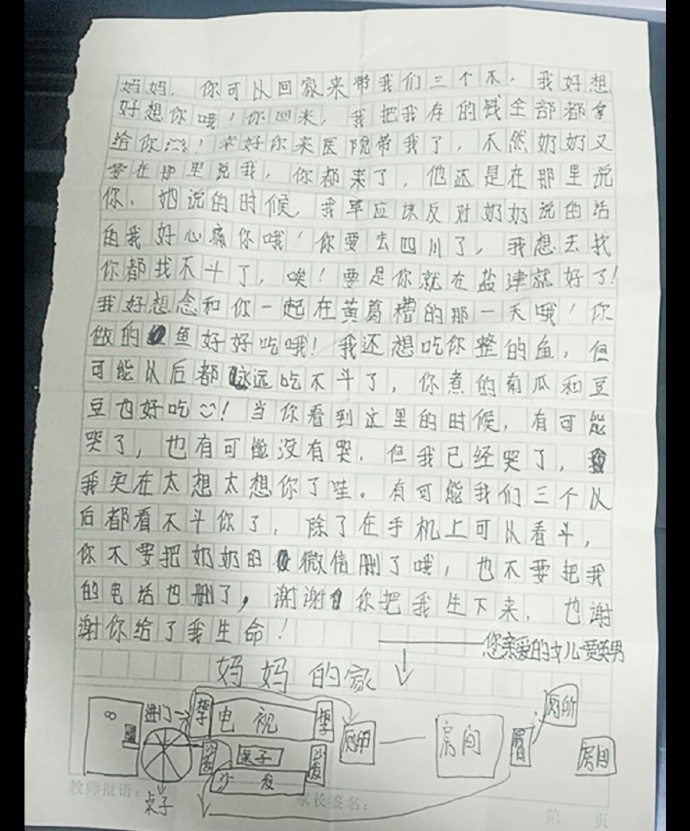 妈妈，你可以回家来带我们三个不，我好想
好想你哦！你回来，我把我存的钱全部都拿
给你！幸好你来医院带我了，不然奶奶又
要在那里说我，你都来了，他还是在那里说
你，她说的时候，我早应该反对奶奶说的话
的我好心痛你哦！你要去四川了，我想去找
你都找不斗了，唉！要是你就在盐津就好了！
我好想念和你一起在黄葛槽的那一天哦！你
做的鱼好好吃哦！我还想吃你整的鱼，但
可能以后都永远吃不斗了，你煮的南瓜和豆
豆也好吃！当你看到这里的时候，有可能
哭了，也有可能没有哭，但我已经哭了，
我实在太想太想你了哇。有可能我们三个以
后都看不斗你了，除了在手机上可以看斗，
你不要把奶奶的微信删了哦，也不要把我
的电话也删了，谢谢你把我生下来，也谢
谢你给了我生命！
——您亲爱的女儿
妈妈的家
进门 电视 厕所 房间 厕所 房间
桌子 沙发
沙发
桌子
教师批语： 家长签名： 第 页